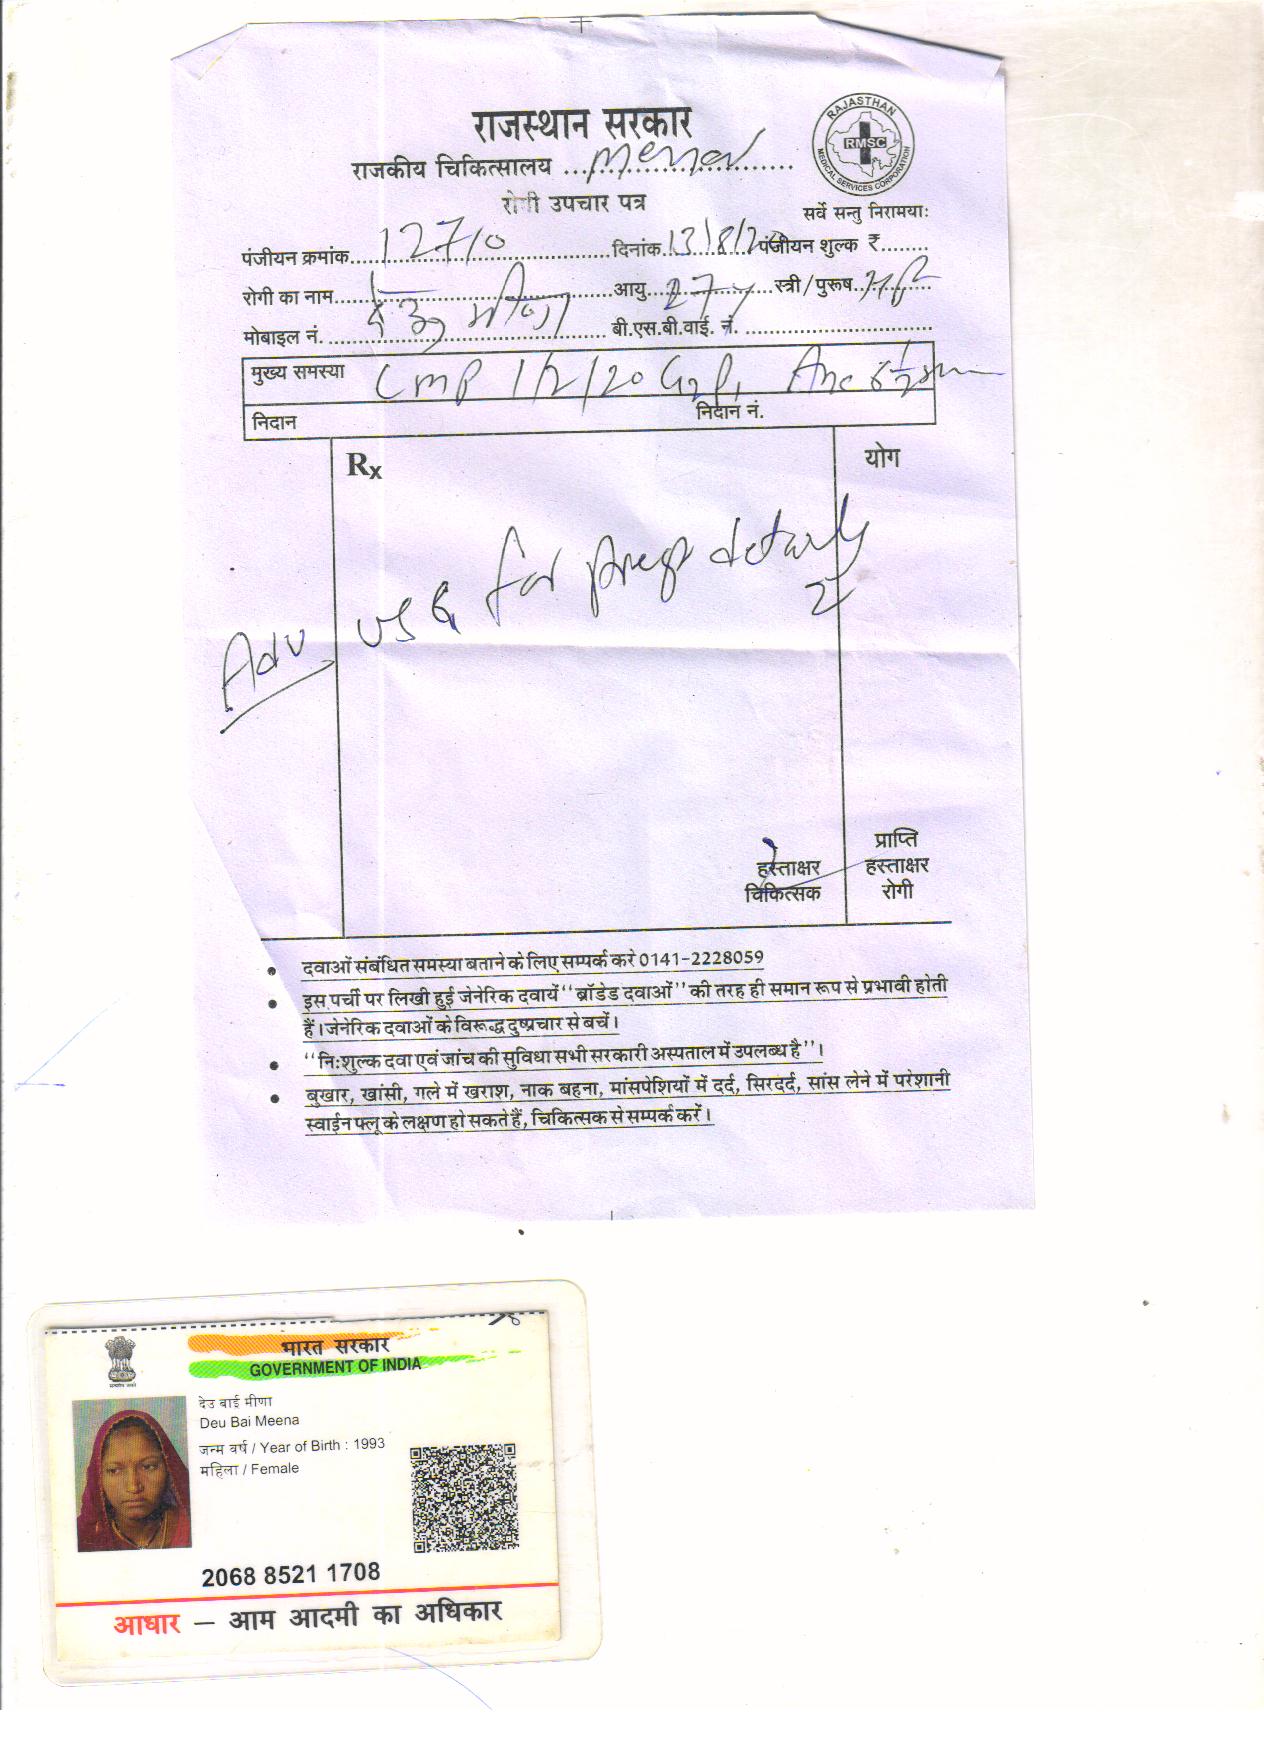 राजस्थान सरकार
राजकीय चिकित्सालय ... menar
RAJASTHAN MEDICAL SERVICES CORPORATION
RMSC
रोगी उपचार पत्र
सर्वे सन्तु निरामयाः
पंजीयन क्रमांक 12710 दिनांक 13/8/20 पंजीयन शुल्क ₹
रोगी का नाम देउ मीणा आयु 27 y स्त्री/पुरूष
मोबाइल नं. बी.एस.बी.वाई. नं.
मुख्य समस्या LMP 1/2/20 G2P1 Anc 6 1/2
निदान निदान नं.
Rx योग
Adv USG for preg
हस्ताक्षर
चिकित्सक
प्राप्ति
हस्ताक्षर
रोगी
• दवाओं संबंधित समस्या बताने के लिए सम्पर्क करे 0141-2228059
• इस पर्ची पर लिखी हुई जेनेरिक दवायें "ब्रॉडेड दवाओं" की तरह ही समान रूप से प्रभावी होती
हैं। जेनेरिक दवाओं के विरूद्ध दुष्प्रचार से बचें।
• "निःशुल्क दवा एवं जांच की सुविधा सभी सरकारी अस्पताल में उपलब्ध है"।
• बुखार, खांसी, गले में खराश, नाक बहना, मांसपेशियों में दर्द, सिरदर्द, सांस लेने में परेशानी
स्वाईन फ्लू के लक्षण हो सकते हैं, चिकित्सक से सम्पर्क करें।
भारत सरकार
GOVERNMENT OF INDIA
देउ बाई मीणा
Deu Bai Meena
जन्म वर्ष / Year of Birth : 1993
महिला / Female
2068 8521 1708
आधार – आम आदमी का अधिकार